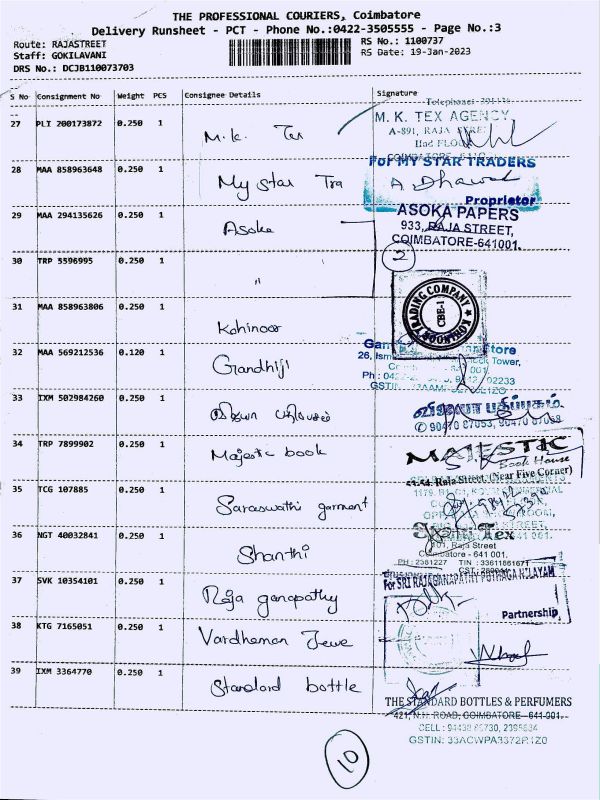 THE PROFESSIONAL COURIERS, Coimbatore
Delivery Runsheet - PCT - Phone No.:0422-3505555 - Page No.:3
Route: RAJASTREET
RS No.: 1100737
Staff: GOKILAVANI
RS Date: 19-Jan-2023
DRS No.: DCJB110073703
S No Consignment No Weight PCS Consignee Details Signature
27 PLI 200173872 0.250 1 M.K. Tex
M. K. TEX AGENCY
A-891, RAJA
IInd FLOOR
28 MAA 858963648 0.250 1 My Star Tra
For MY STAR TRADERS
A. Dhawal
Proprietor
29 MAA 294135626 0.250 1 Asoka
ASOKA PAPERS
933, RAJA STREET,
COIMBATORE-641001.
30 TRP 5596995 0.250 1 "
2
31 MAA 858963806 0.250 1 Kohinoor
KOHINOOR TRADING COMPANY
CBE-1
32 MAA 569212536 0.120 1 Gandhiji
Store
Clock Tower,
33 IXM 502984260 0.250 1 விஜயா பதிப்பகம்
விஜயா பதிப்பகம்
90470 87053, 90470 87058
34 TRP 7899902 0.250 1 Majestic book
MAJESTIC
Book House
Raja Street, (Near Five Corner)
35 TCG 107885 0.250 1 Saraswathi garment
36 NGT 40032841 0.250 1 Shanthi
Tex
301, Raja Street
Coimbatore - 641 001.
PH : 2381227 TIN : 33611861671
37 SVK 10354101 0.250 1 Raja ganapathy
For SRI RAJAGANAPATHY PUTHAGA NILAYAM
Partnership
38 KTG 7165051 0.250 1 Vardhaman Jewe
39 IXM 3364770 0.250 1 Standard bottle
THE STANDARD BOTTLES & PERFUMERS
421, N.H. ROAD, COIMBATORE - 641 001.
GSTIN: 33ACWPA3372R1Z0
10